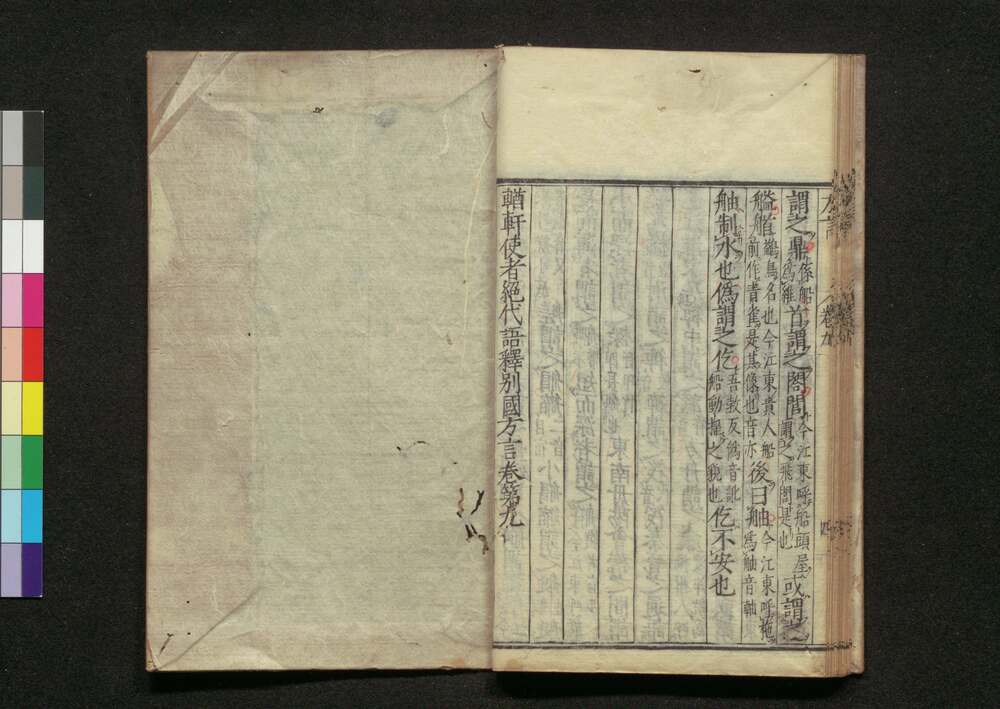 方言 卷九
謂之鼎係船爲維首謂之閤閭今江東呼船頭屋謂之飛閭是也或謂之
艗艏鷁鳥名也今江東貴人船前作青雀是其像也音亦後曰舳今江東呼柂爲舳音軸
舳制水也僞謂之仡吾敎反僞音訛船動揺之貌也仡不安也
輶軒使者絕代語釋別國方言卷第九